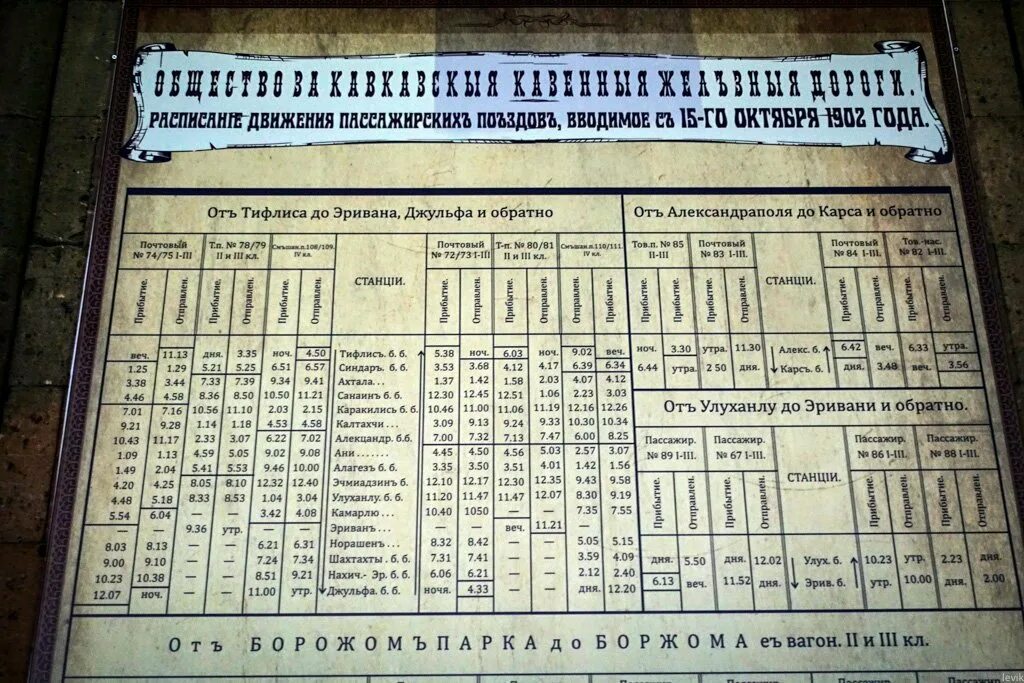 ОБЩЕСТВО ЗА КАВКАВСКЫЯ КАЗЕННЫЯ ЖЕЛѢЗНЫЯ ДОРОГИ.
РАСПИСАНІЕ ДВИЖЕНИЯ ПАССАЖИРСКИХЪ ПОѢЗДОВЪ, ВВОДИМОЕ СЪ 15-ГО ОКТЯБРЯ 1902 ГОДА.
Отъ Тифлиса до Эривана, Джульфа и обратно
Почтовый Т.п. № 78/79 Смѣшан.п.108/109. СТАНЦІИ. Почтовый Т-п. № 80/81 Смѣшан.п.110/111.
№ 74/75 I-III II и III кл. IV кл. № 72/73 I-III II и III кл. IV кл.
Прибытие. Отправлен. Прибытие. Отправлен. Прибытие. Отправлен. Прибытие. Отправлен. Прибытие. Отправлен. Прибытие. Отправлен.
веч. 11.13 дня. 3.35 ноч. 4.50 Тифлисъ. б. б. 5.38 ноч. 6.03 ноч. 9.02 веч.
1.25 1.29 5.21 5.25 6.51 6.57 Синдаръ. б. б. 3.53 3.68 4.12 4.17 6.39 6.34
3.38 3.44 7.33 7.39 9.34 9.41 Ахтала... 1.37 1.42 1.58 2.03 4.07 4.12
4.46 4.58 8.36 8.50 10.50 11.21 Санаин б. б. 12.30 12.45 12.51 1.06 2.23 3.03
7.01 7.16 10.56 11.10 2.03 2.15 Каракилисъ б. б. 10.46 11.00 11.06 11.19 12.16 12.26
9.21 9.28 1.14 1.18 4.53 4.58 Калтахчи... 3.09 9.13 9.24 9.33 10.30 10.34
10.43 11.17 2.33 3.07 6.22 7.02 Алекцандр. б.б. 7.00 7.32 7.13 7.47 6.00 8.25
1.09 1.13 4.59 5.05 9.02 9.08 Ани....... 4.45 4.50 4.56 5.03 2.57 3.07
1.49 2.04 5.41 5.53 9.46 10.00 Алагезъ б. б. 3.35 3.50 3.51 4.01 1.42 1.56
4.20 4.25 8.05 8.10 12.32 12.40 Эчмиадзинъ б. б. 12.10 12.17 12.30 12.35 9.43 9.58
4.48 5.18 8.33 8.53 1.04 3.04 Улуханлу. б. б. 11.20 11.47 11.47 12.07 8.30 9.19
5.54 6.04 — — 3.42 4.08 Камарлю ... 10.40 1050 — — 7.35 7.55
— — 9.36 утр. — — Эриванъ... — — веч. 11.21 — —
8.03 8.13 — — 6.21 6.31 Норашенъ.. 8.32 8.42 — — 5.05 5.15
9.00 9.10 — — 7.24 7.34 Шахтахты. б. б. 7.31 7.41 — — 3.59 4.09
10.23 10.38 — — 8.51 9.21 Нахич.- Эр. б. б. 6.06 6.21 — — 2.12 2.40
12.07 ноч. — — 11.00 утр. Джульфа. б. б. ночя. 4.33 — — дня. 12.20
Отъ Александраполя до Карса и обратно
Тов.п. № 85 Почтовый СТАНЦІИ. Почтовый Тов.-пас.
II-III № 83 I-III. № 84 I-III. № 82 I-III.
Прибытие. Отправлен. Прибытие. Отправлен. Прибытие. Отправлен. Прибытие. Отправлен.
ноч. 3.30 утра. 11.30 Алекс. б. 6.42 веч. 6.33 утра.
6.44 утра. 2 50 дня. Карсъ. б. дня. 3.48 веч. 3.56
Отъ Улуханлу до Эривани и обратно.
Пассажир. Пассажир. СТАНЦІИ. Пассажир. Пассажир.
№ 89 I-III. № 67 I-III. № 86 I-III. № 88 I-III.
Прибытие. Отправлен. Прибытие. Отправлен. Прибытие. Отправлен. Прибытие. Отправлен.
дня. 5.50 дня. 12.02 Улух. б. 10.23 утр. 2.23 дня.
6.13 веч. 11.52 дня. Эрив. б. утр. 10.00 дня. 2.00
Отъ БОРОЖОМЪПАРКА до БОРЖОМА еъ вагон. II и III кл.
levik